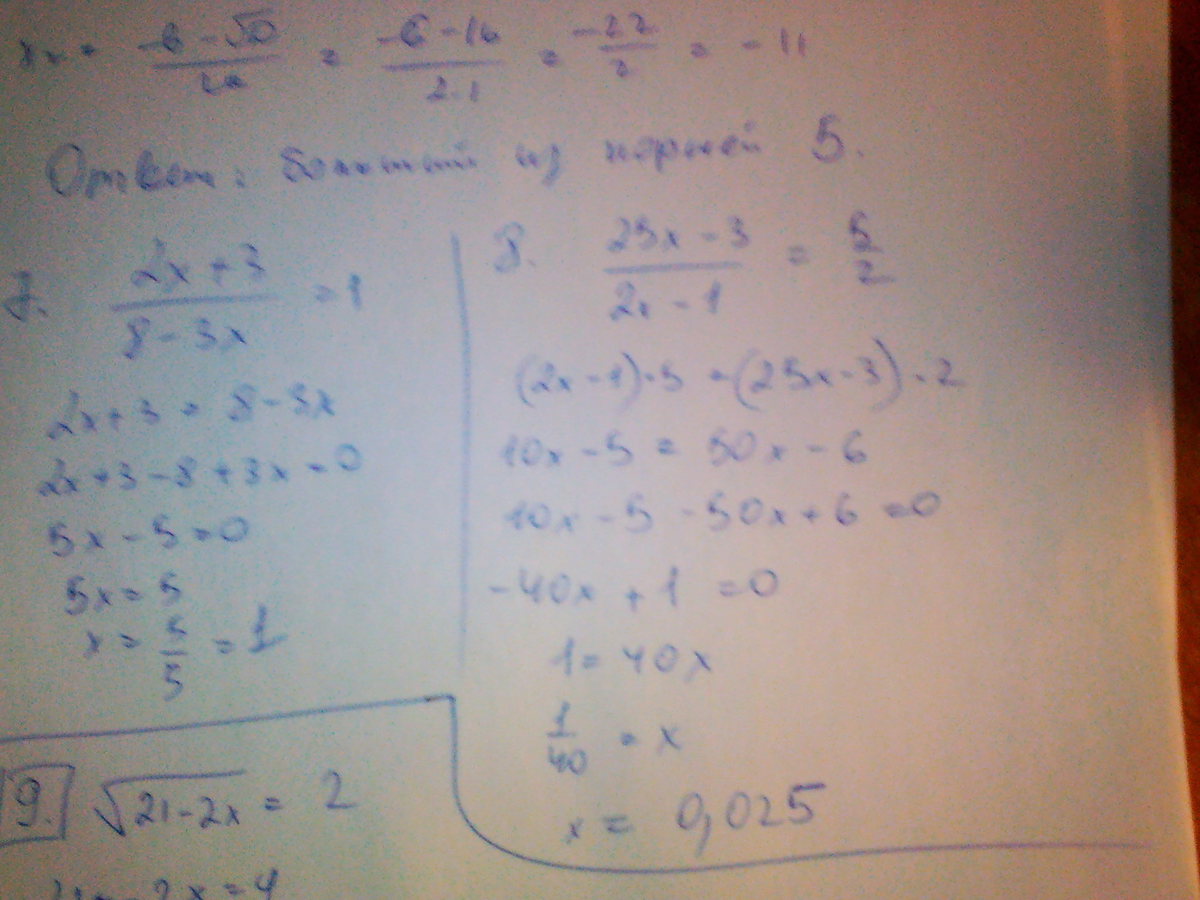 x₂ = (-b - √D)/2a = (-6 - 16)/(2·1) = -22/2 = -11
Ответ: больший из корней 5.
7. (2x + 3)/(8 - 3x) = 1
2x + 3 = 8 - 3x
2x + 3 - 8 + 3x = 0
5x - 5 = 0
5x = 5
x = 5/5 = 1
8. (25x - 3)/(2x - 1) = 5/2
(2x - 1)·5 = (25x - 3)·2
10x - 5 = 50x - 6
10x - 5 - 50x + 6 = 0
-40x + 1 = 0
1 = 40x
1/40 = x
x = 0,025
9. √(21 - 2x) = 2
21 - 2x = 4